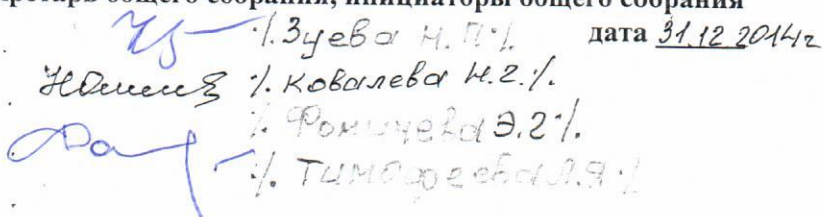 общего собрания, инициаторы общего собрания
/. Зуева Н. П. /. дата 31.12.2014г
/. Ковалева Н.Г. /.
/. Фомичева Э.Г /.
/. Тимофеева Л.Я /